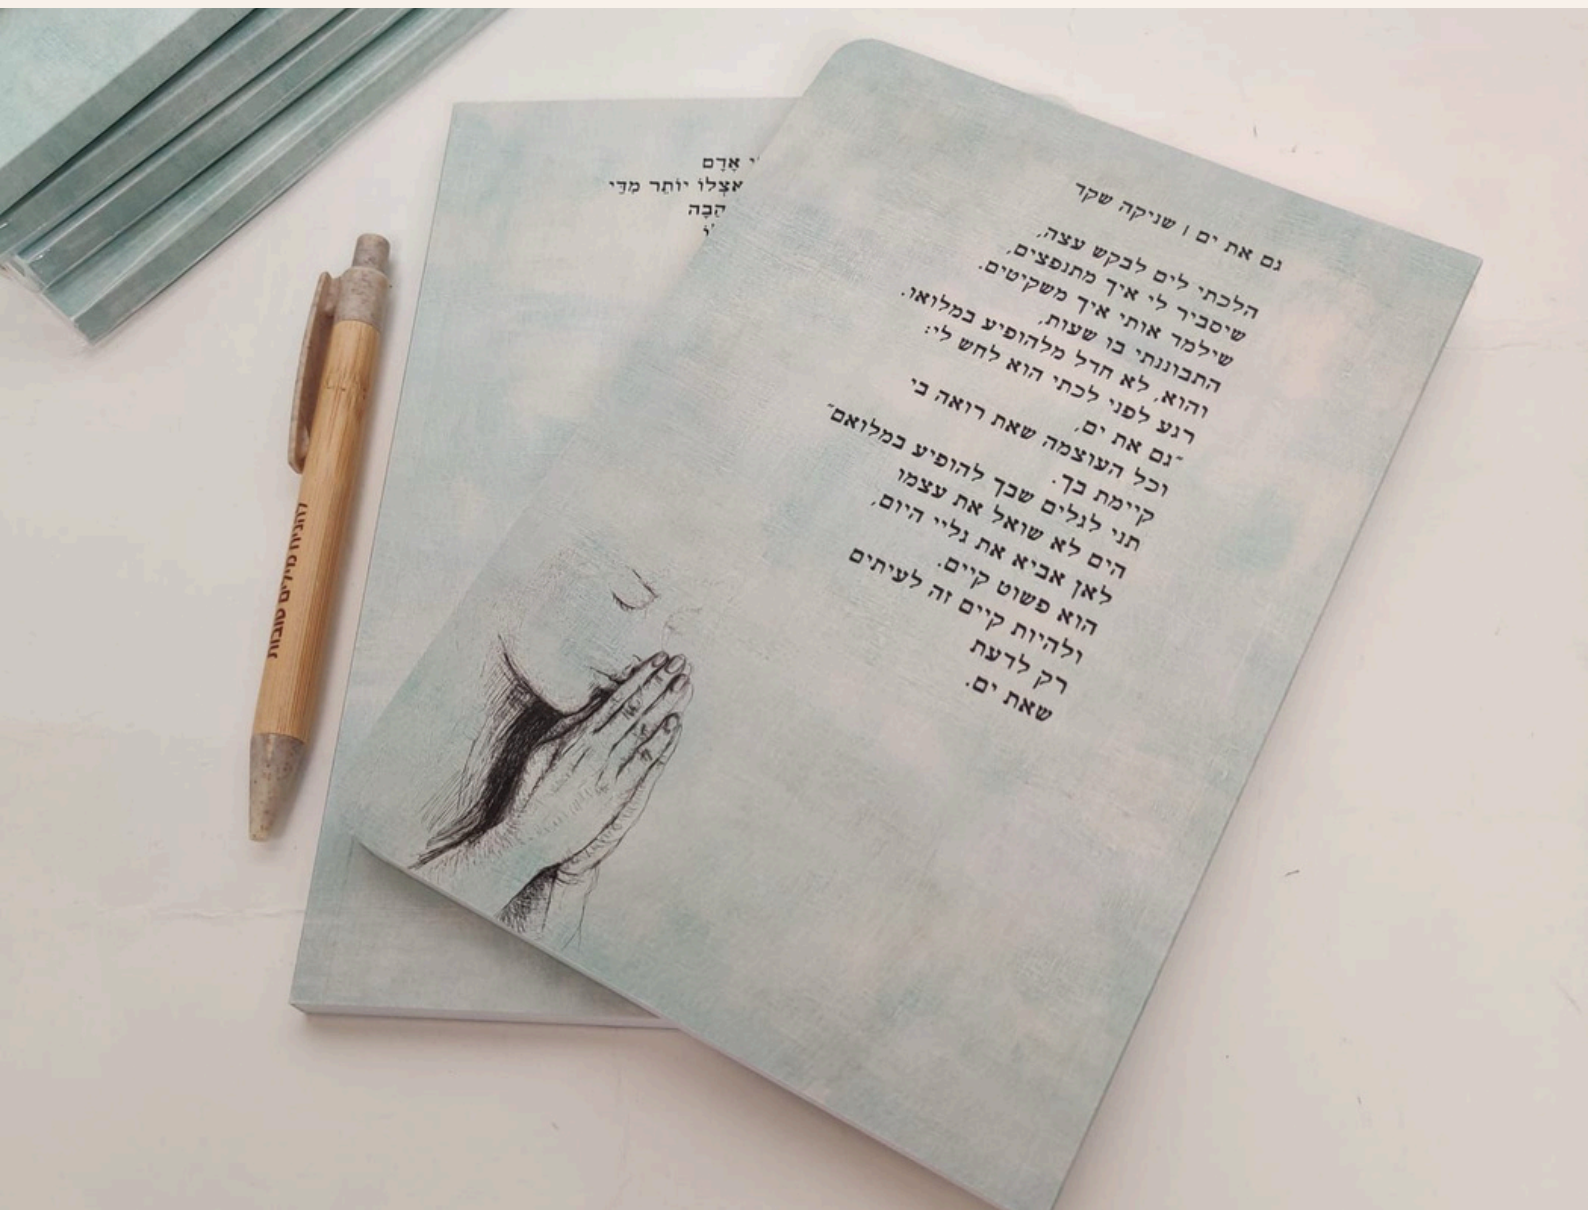 אָדָם
אֶצְלוֹ יוֹתֵר מִדַּי
גם את ים | שניקה שקד
הלכתי לים לבקש עצה,
שיסביר לי איך מתנפצים,
שילמד אותי איך משקיטים.
התבוננתי בו שעות,
והוא, לא חדל מלהופיע במלואו.
רגע לפני לכתי הוא לחש לי:
"גם את ים,
וכל העוצמה שאת רואה בי
קיימת בך.
תני לגלים שבך להופיע במלואם"
הים לא שואל את עצמו
לאן אביא את גליי היום,
הוא פשוט קיים.
ולהיות קיים זה לעיתים
רק לדעת
שאת ים.
מילים טובות